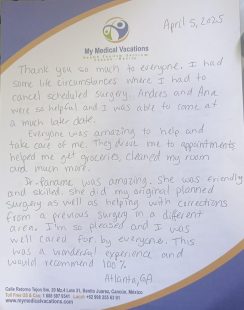 April 5, 2025
My Medical Vacations
Thank you so much to everyone. I had
some life circumstances where I had to
cancel scheduled surgery. Anders and Ana
were so helpful and I was able to come at
a much later date.
Everyone was amazing to help and
take care of me. They drove me to appointments
helped me get groceries, cleaned my room
and much more.
Dr. was amazing. She was friendly
and skilled. She did my original planned
surgery as well as helping with corrections
from a previous surgery in a different
area. I'm so pleased and I was
well cared for by everyone. This
was a wonderful experience and
would recommend 100%
Atlanta, GA
Calle Retorno Tejon Sm. 20 Mz.4 Lote 31, Benito Juarez, Cancun, México
Toll Free US & Can: Local:
www.mymedicalvacations.com